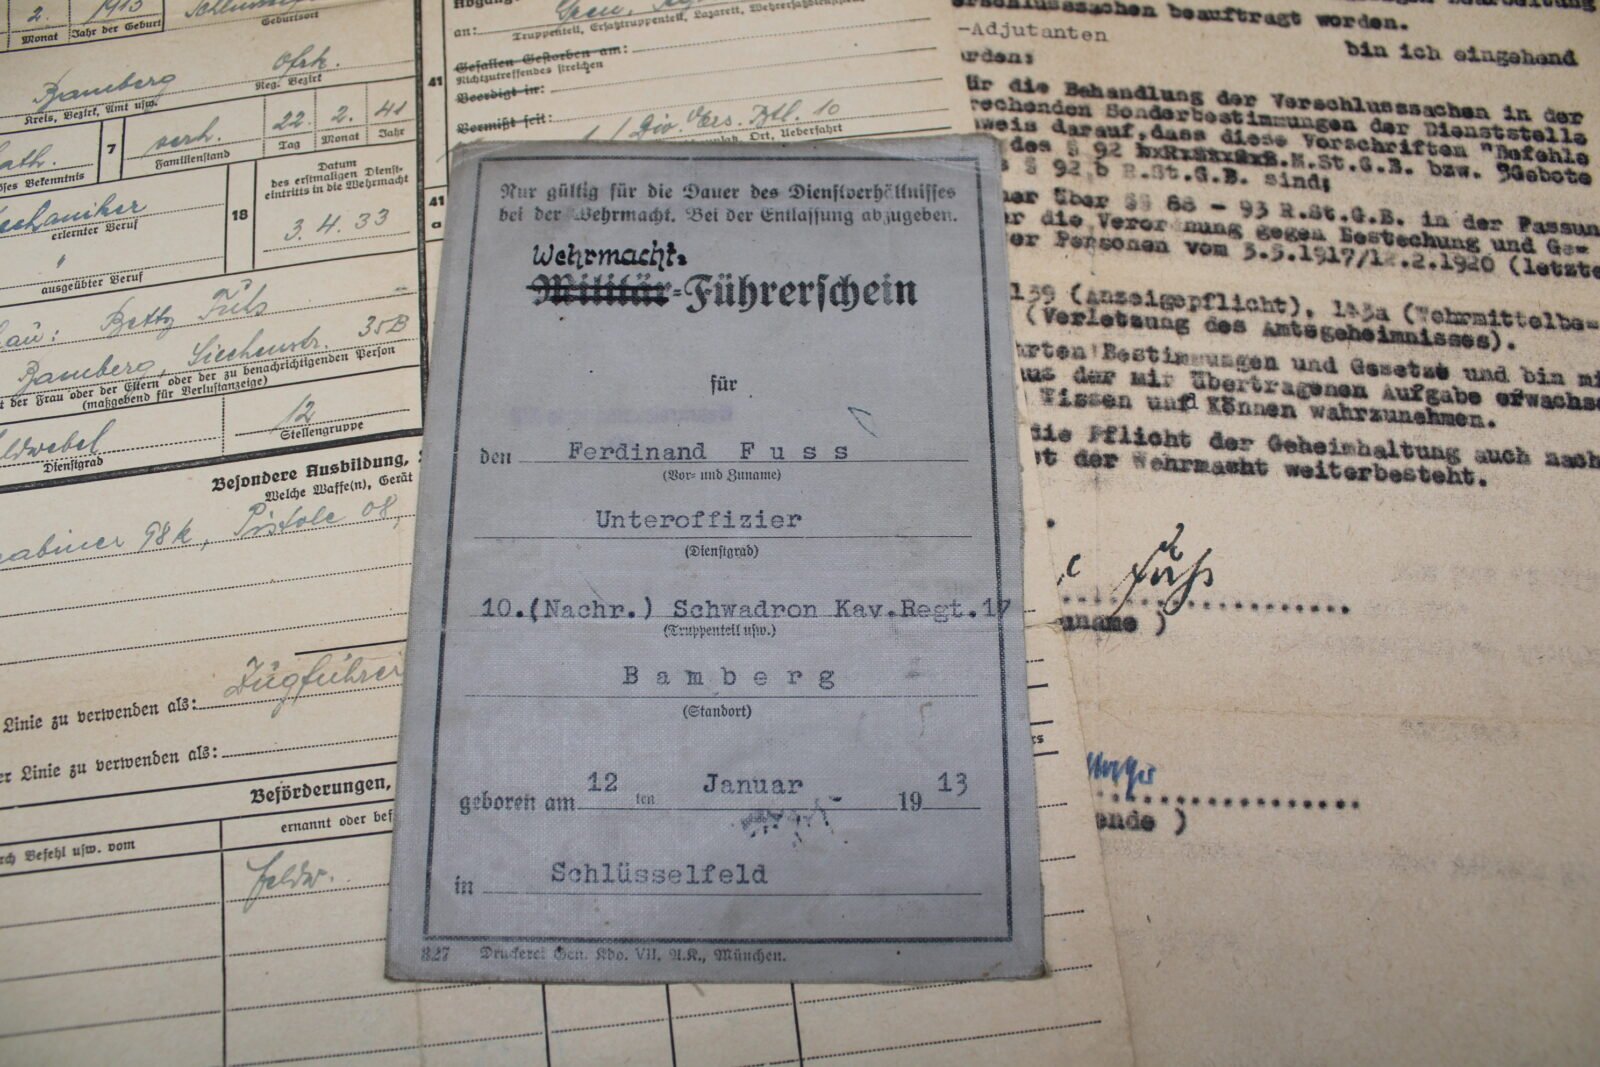 2. 1913 Schlüsselfeld
Monat Jahr der Geburt Geburtsort
Bamberg Ofrk.
Kreis, Bezirk, Amt usw. Reg. Bezirk
7 verh. 22. 2. 41
Bekenntnis Familienstand Tag Monat Jahr
erlernter Beruf
18
Datum
des erstmaligen Dienst-
eintritts in die Wehrmacht
3. 4. 33
"
ausgeübter Beruf
Betty Fuß
Bamberg, Siechenstr. 35B
der Frau oder der Eltern oder der zu benachrichtigenden Person
(maßgebend für Verlustanzeige)
12
Dienstgrad Stellengruppe
Besondere Ausbildung,
Welche Waffe(n), Gerät
98k, Pistole 08,
Linie zu verwenden als: Zugführer
Linie zu verwenden als:
Beförderungen,
Befehl usw. vom
ernannt oder
Feldw.
an:
Truppenteil, Ersatztruppenteil, Lazarett,
41
Gefallen Gestorben am:
Nichtzutreffendes streichen
Beerdigt in:
Vermißt seit:
Div. Ers. Btl. 10
Ort, Ueberfahrt
41
a
Nur gültig für die Dauer des Dienstverhältnisses
bei der Wehrmacht. Bei der Entlassung abzugeben.
Wehrmacht-
Militär-Führerschein
für
den Ferdinand Fuss
(Vor- und Zuname)
Unteroffizier
(Dienstgrad)
10.(Nachr.) Schwadron Kav.Regt.17
(Truppenteil usw.)
Bamberg
(Standort)
geboren am 12 ten Januar 1913
in Schlüsselfeld
827 Druckerei Gen. Kdo. VII. A.K., München.
beauftragt worden.
-Adjutanten
bin ich eingehend
die Behandlung der Verschlusssachen in der
Sonderbestimmungen der Dienststelle
darauf, dass diese Vorschriften "Befehle
des § 92 R.M.St.G.B. bzw. "Gebote
§ 92 b R.St.G.B. sind;
über §§ 88 - 93 R.St.G.B. in der
die Verordnung gegen Bestechung und Ge-
Personen vom 3.5.1917/12.2.1920 (letzte
139 (Anzeigepflicht), 143a (Wehrmittelbe-
(Verletzung des Amtsgeheimnisses).
Bestimmungen und Gesetze und bin
der mir übertragenen Aufgabe
Wissen und Können wahrzunehmen.
die Pflicht der Geheimhaltung auch nach
der Wehrmacht weiterbesteht.
Fuß